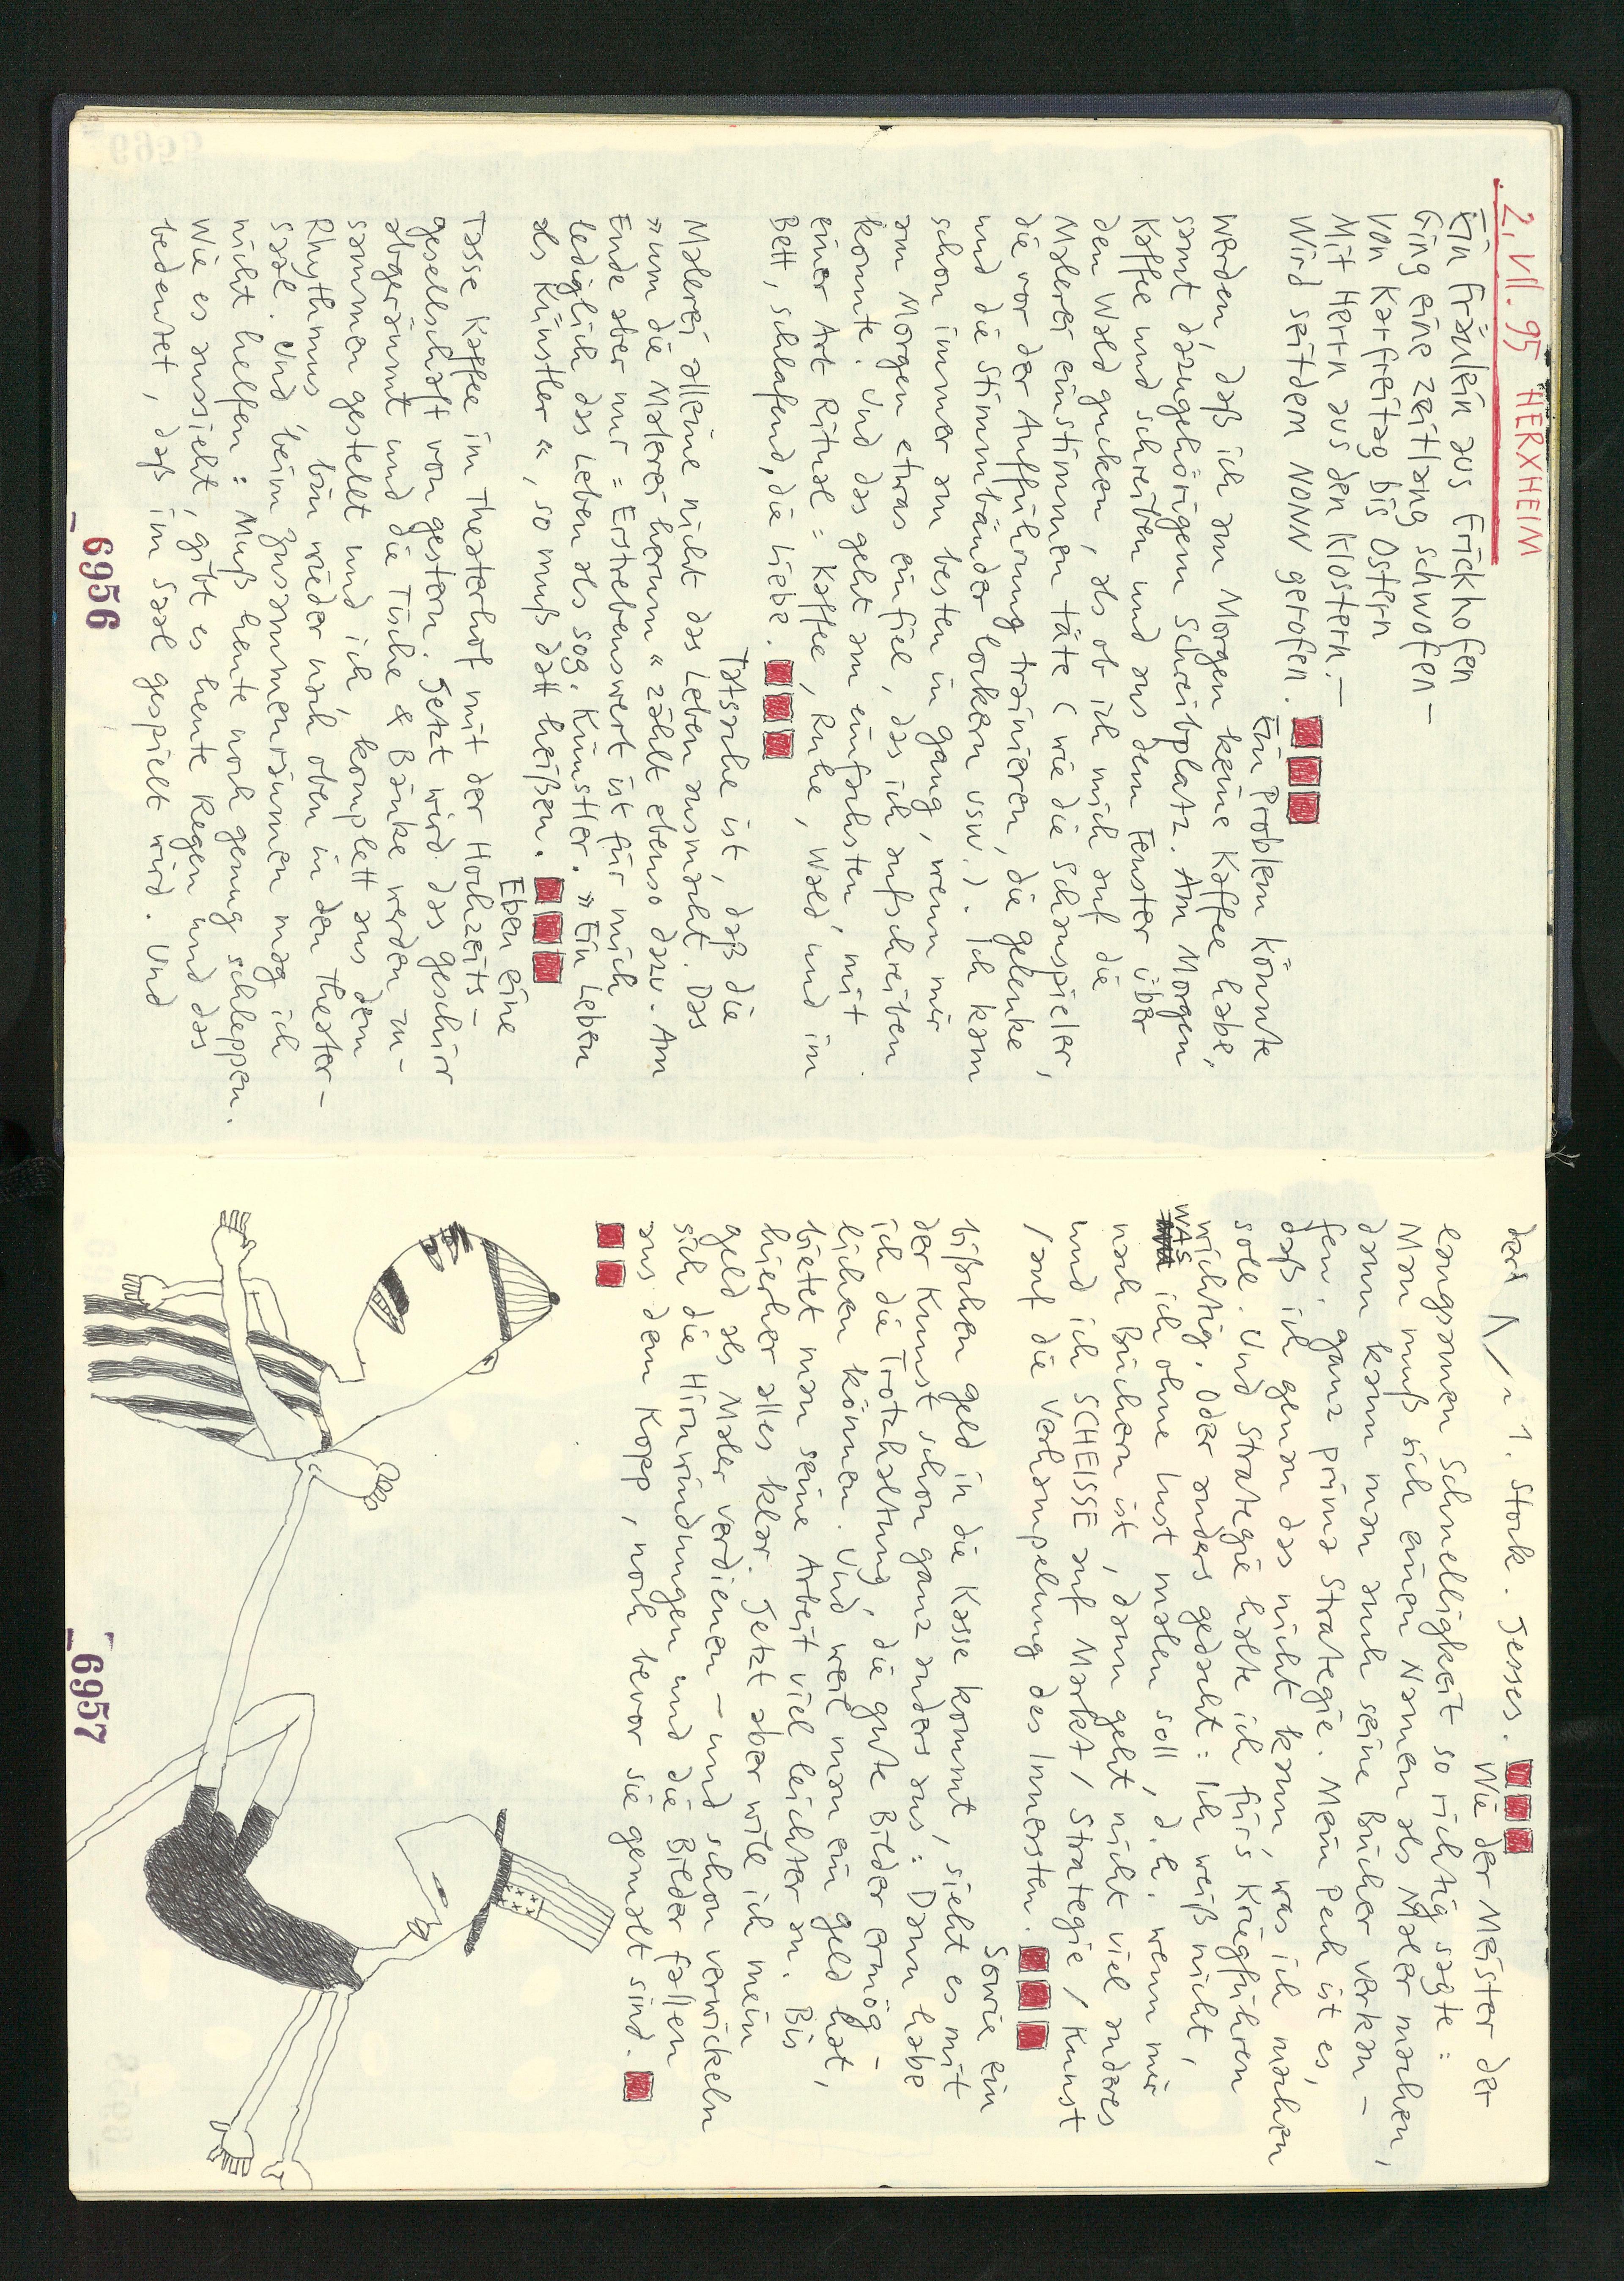 2. VII. 95 HERXHEIM
Ein Fräulein aus Frickhofen
Ging eine zeitlang schwofen –
Von Karfreitag bis Ostern
Mit Herrn aus den Klostern. –
Wird seitdem NONN gerofen.
Ein Problem könnte
werden, daß ich am Morgen keine Kaffee habe,
samt dazugehörigem Schreibplatz. Am Morgen
Kaffee und schreiben und aus dem Fenster über
den Wald gucken, als ob ich mich auf die
Malerei einstimmen täte (wie die Schauspieler,
die vor der Aufführung trainieren, die Gelenke
und die Stimmbänder lockern usw.). Ich kam
schon immer am besten in gang, wenn mir
am Morgen etwas einfiel, das ich aufschreiben
konnte. Und das geht am einfachsten, mit
einer Art Ritual = Kaffee, Ruhe, Wald, und im
Bett, schlafend, die Liebe.
Tatsache ist, daß die
Malerei alleine nicht das Leben ausmacht. Das
»um die Malerei herum« zählt ebenso dazu. Am
Ende aber nur = Erstrebenswert ist für mich
lediglich das Leben als sog. Künstler. »Ein Leben
als Künstler«, so muß datt heißen.
Eben eine
Tasse Kaffee im Theaterhof mit der Hochzeits-
gesellschaft von gestern. Jetzt wird das Geschirr
abgeräumt und die Tische & Bänke werden zu-
sammen gestellt und ich, komplett aus dem
Rhythmus, bin wieder nach oben in den Theater-
saal. Und beim Zusammenräumen mag ich
nicht helfen: Muß heute noch genug schleppen.
Wie es aussieht, gibt es heute Regen und das
bedeutet, daß im Saal gespielt wird. Und
6956
dat 1. Stock. Jesses.
Wie der Meister der
langsamen Schnelligkeit so richtig sagte:
Man muß sich einen Namen als Maler machen,
dann kann man auch seine Bücher verkau-
fen. ganz prima Strategie. Mein Pech ist es,
daß ich genau das nicht kann, was ich machen
soll. Und Strategie halte ich für's Kriegführen
wichtig. Oder anders gedacht: Ich weiß nicht,
WAS ich ohne Lust malen soll, d.h. wenn mir
nach Büchern ist, dann geht nicht viel anderes
und ich SCHEISSE auf Markt / Strategie / Kunst
/ auf die Verhampelung des Innersten.
Sowie ein
bißchen geld in die Kasse kommt, sieht es mit
der Kunst schon ganz anders aus: Dann habe
ich die Trotzhaltung, die gute Bilder ermög-
lichen können. Und weil man ein geld hat,
bietet man seine Arbeit viel leichter an. Bis
hierher alles klar. Jetzt aber will ich mein
geld als Maler verdienen – und schon verwickeln
sich die Hirnwindungen und die Bilder fallen
aus dem Kopp, noch bevor sie gemalt sind.
6957